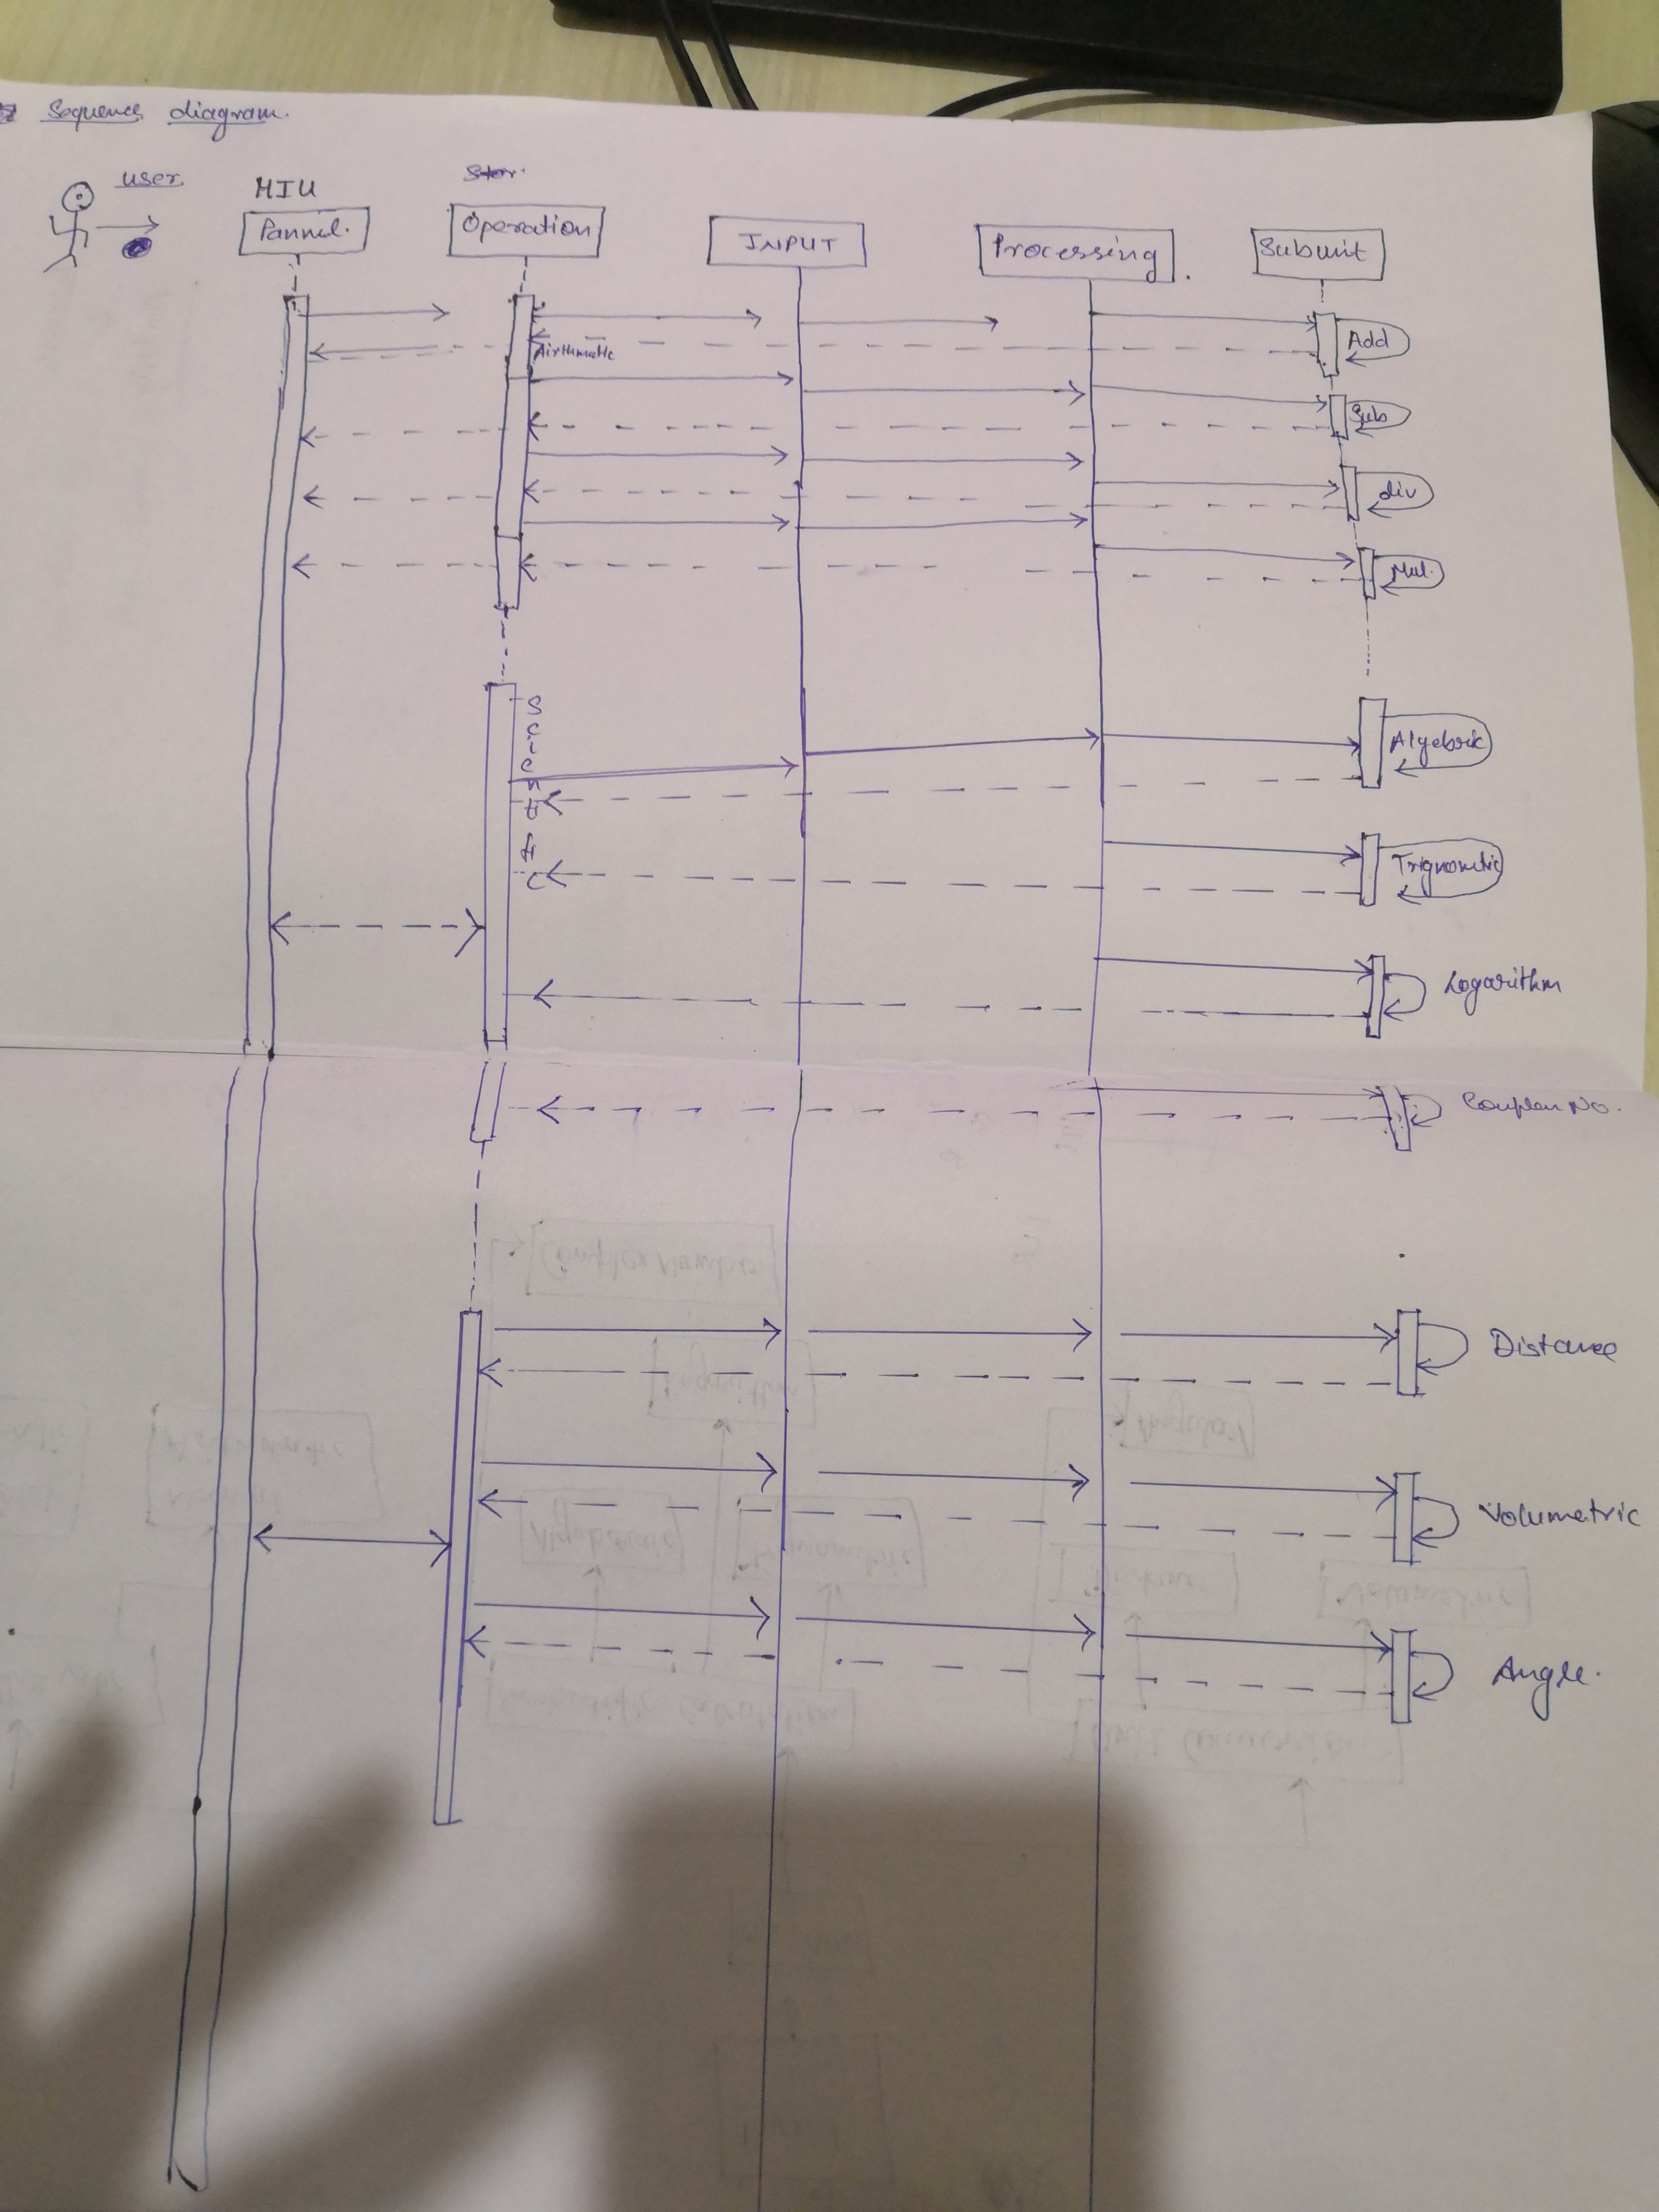 Sequence diagram.
user
MIU
Pannel.
Operation
INPUT
Processing
Subunit
Add
Airthmatic
Sub
div
Mul.
Scientific
Algebric
Trignometric
Logarithm
No.
Distance
Volumetric
Angle.